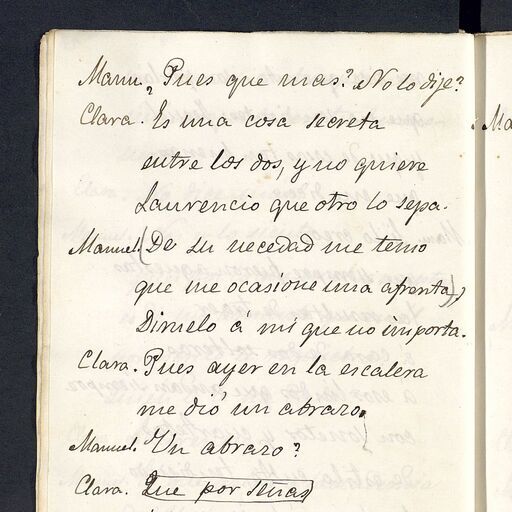 Manu. Pues que mas? No lo dije?
Clara. Es una cosa secreta
entre los dos, y no quiere
Laurencio que otro lo sepa.
Manuel. (De su necedad me temo
que me ocasione una afrenta),
Dimelo á mi que no importa.
Clara. Pues ayer en la escalera
me dió un abrazo.
Manuel. Un abrazo?
Clara. Que por señas